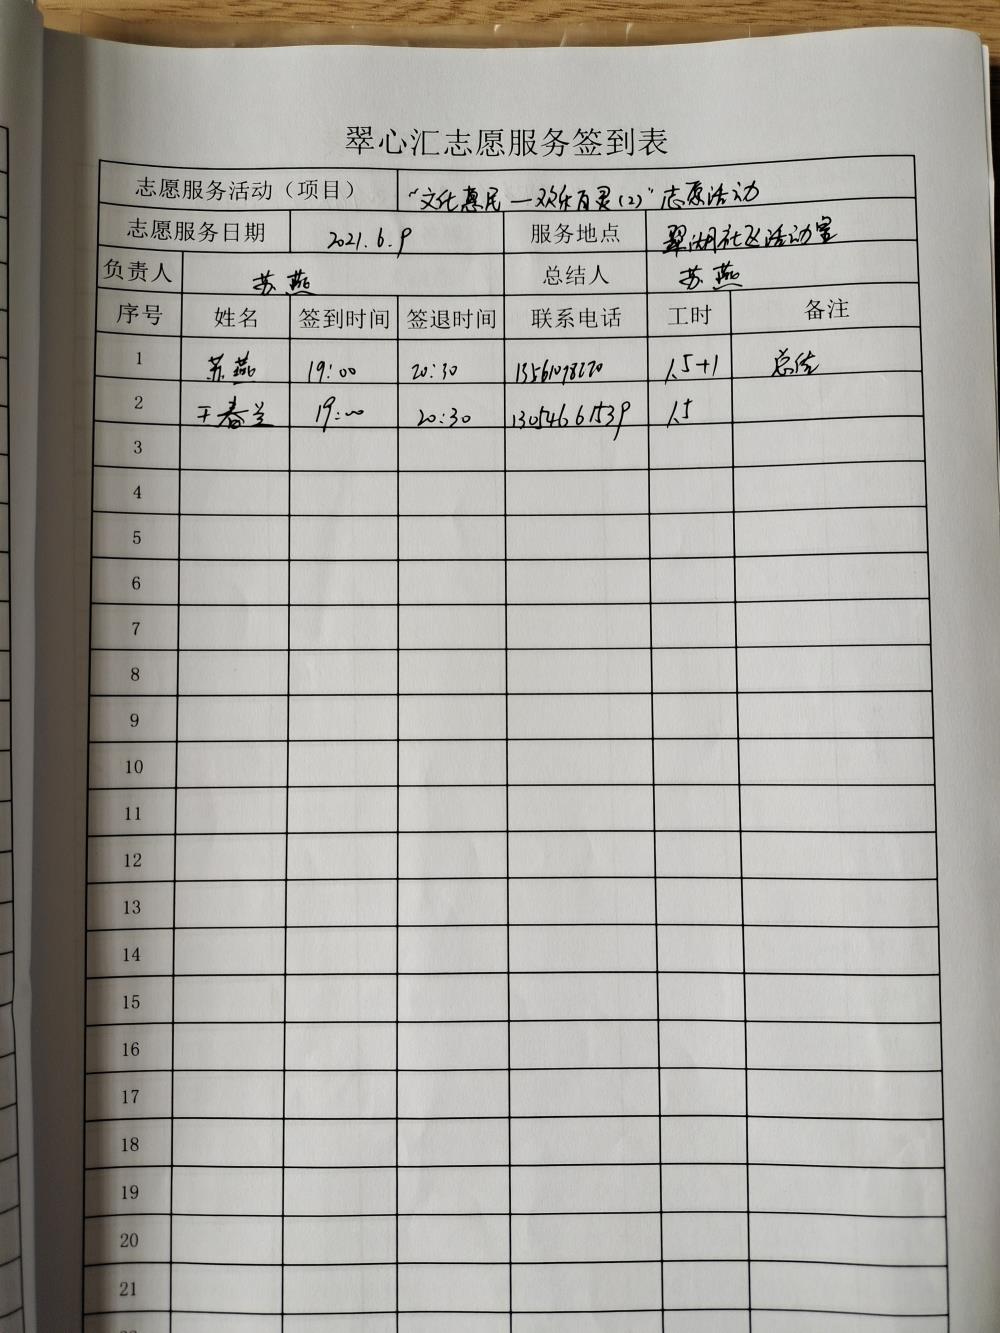 翠心汇志愿服务签到表
志愿服务活动（项目） “文化惠民—欢乐百灵(2)”志愿活动
志愿服务日期 2021.6.9 服务地点 翠湖社区活动室
负责人 苏燕 总结人 苏燕
序号 姓名 签到时间 签退时间 联系电话 工时 备注
1 苏燕 19:00 20:30 1.5+1 总结
2 王春兰 19:00 20:30 13054661539 1.5
3
4
5
6
7
8
9
10
11
12
13
14
15
16
17
18
19
20
21